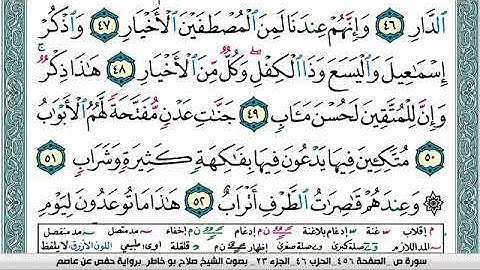 ٱلدَّارِ ٤٦ وَإِنَّهُمْ عِندَنَا لَمِنَ ٱلْمُصْطَفَيْنَ ٱلْأَخْيَارِ ٤٧ وَٱذْكُرْ
إِسْمَٰعِيلَ وَٱلْيَسَعَ وَذَا ٱلْكِفْلِ ۖ وَكُلٌّ مِّنَ ٱلْأَخْيَارِ ٤٨ هَٰذَا ذِكْرٌ ۚ
وَإِنَّ لِلْمُتَّقِينَ لَحُسْنَ مَـَٔابٍ ٤٩ جَنَّٰتِ عَدْنٍ مُّفَتَّحَةً لَّهُمُ ٱلْأَبْوَٰبُ
٥٠ مُتَّكِـِٔينَ فِيهَا يَدْعُونَ فِيهَا بِفَٰكِهَةٍ كَثِيرَةٍ وَشَرَابٍ ٥١
۞ وَعِندَهُمْ قَٰصِرَٰتُ ٱلطَّرْفِ أَتْرَابٌ ٥٢ هَٰذَا مَا تُوعَدُونَ لِيَوْمِ
م إقلاب غنة إدغام بلاغنة ن م إدغام ن م إخفاء مد متصل مد منفصل
المد اللازم صلة كبرى وے صلة صغرى إظهار ن م قلقلة اوى: طبيعي اللون الأزرق لا يلفظ
سورة ص _ الصفحة ٤٥٦_ الحزب ٤٦_ الجزء ٢٣_ بصوت الشيخ صلاح بو خاطر_ برواية حفص عن عاصم